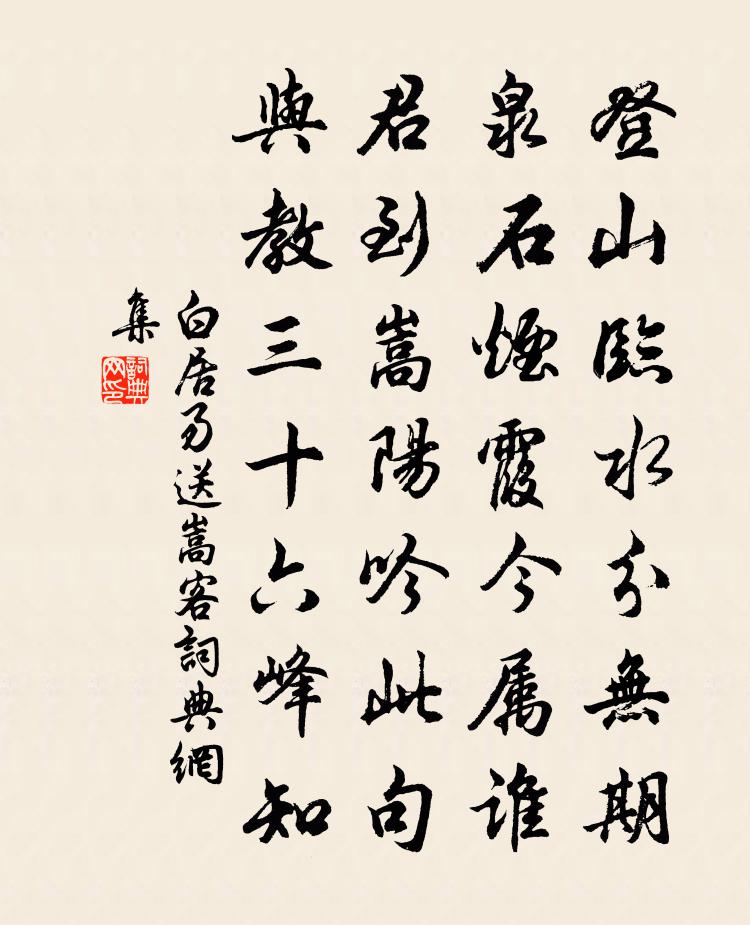 登山臨水分無期
泉石煙霞今属誰
君到嵩陽吟此句
與教三十六峰知
白居易送嵩客詞典網
集
詞典
网印